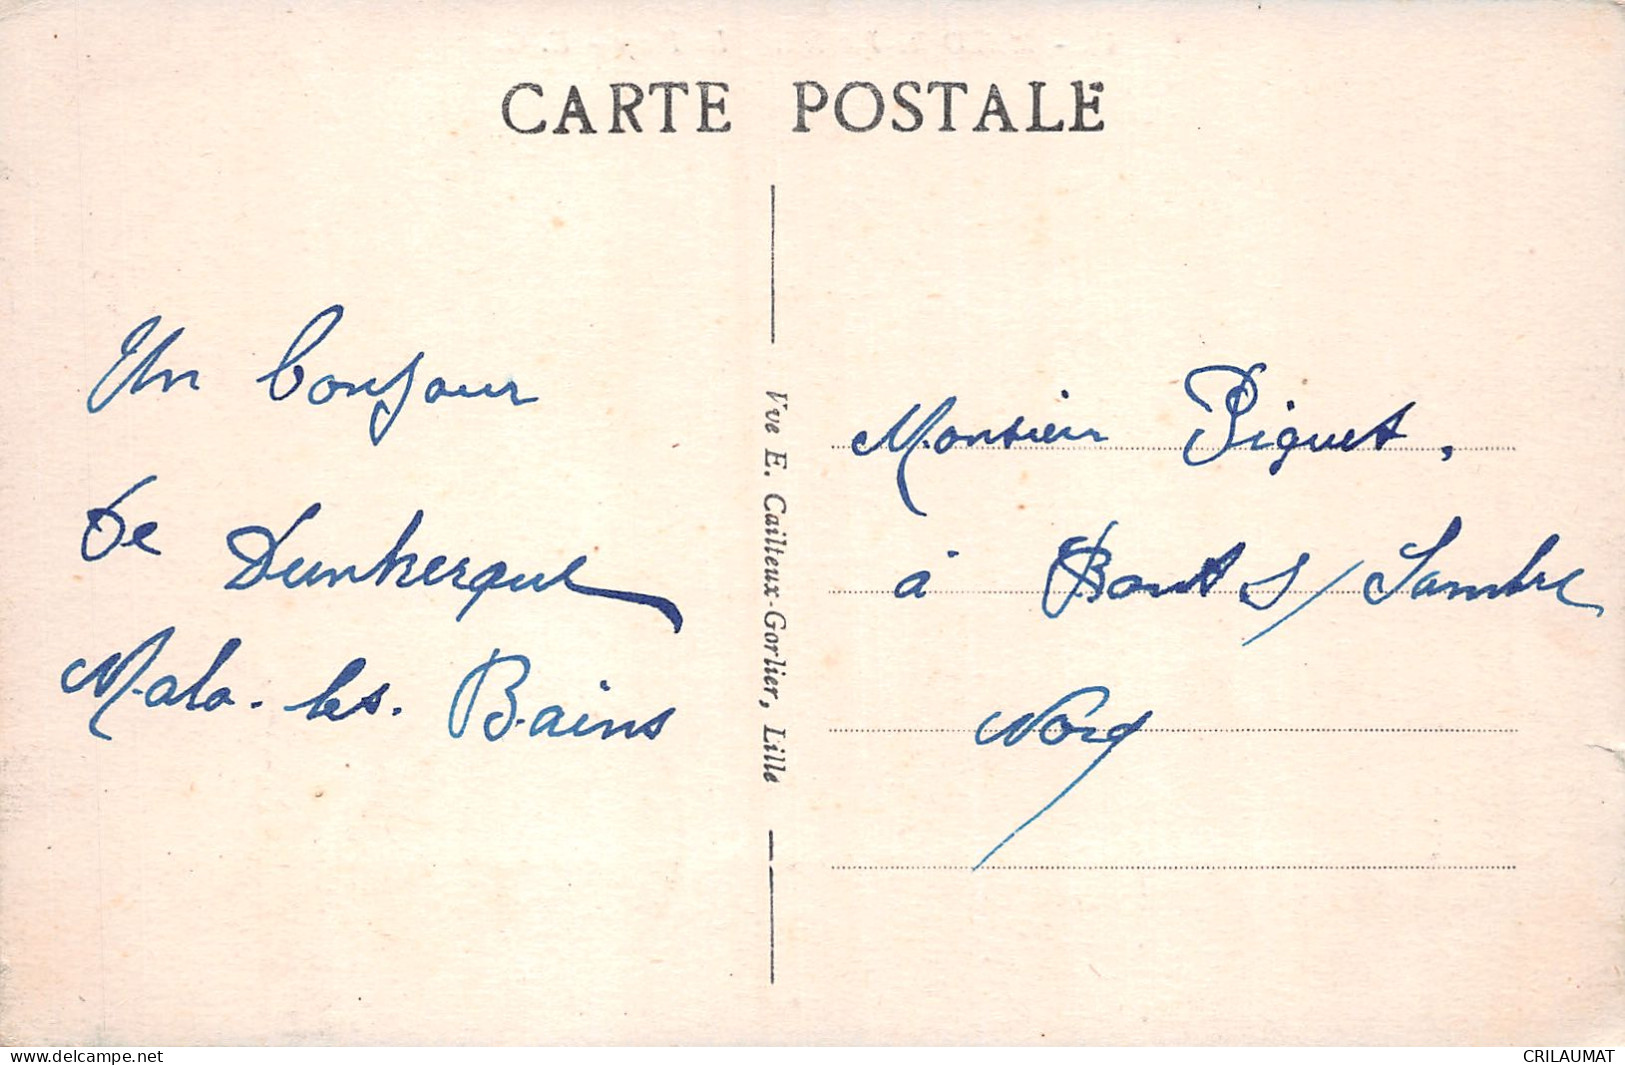 CARTE POSTALE
Un bonjour
de Dunkerque
Malo-les-Bains
Vve E. Cailteux-Gorlier, Lille
Monsieur Piquet,
à Pont s/ Sambre
Nord
www.delcampe.net
CRILAUMAT